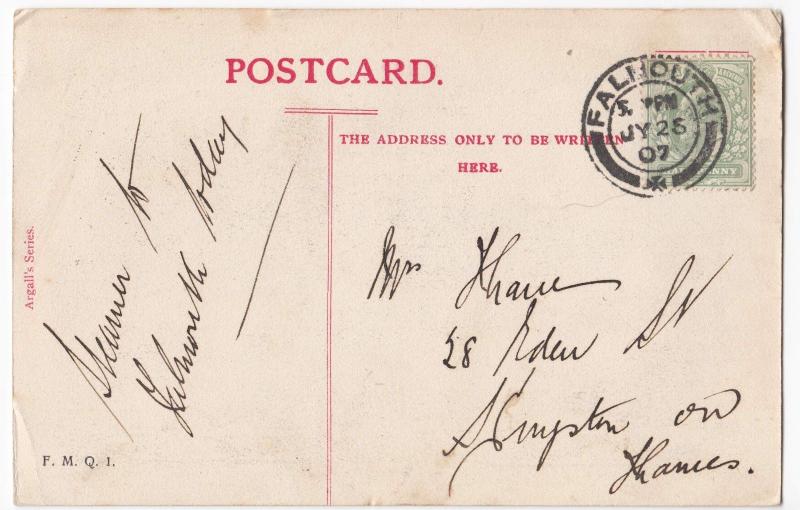 POSTCARD.
THE ADDRESS ONLY TO BE WRITTEN
HERE.
FALMOUTH
5 PM
JY 26
07
PENNY
Argall's Series.
Steamer to
Falmouth today
Mrs Thane
28 Eden St
Kingston on
Thames.
F. M. Q. 1.